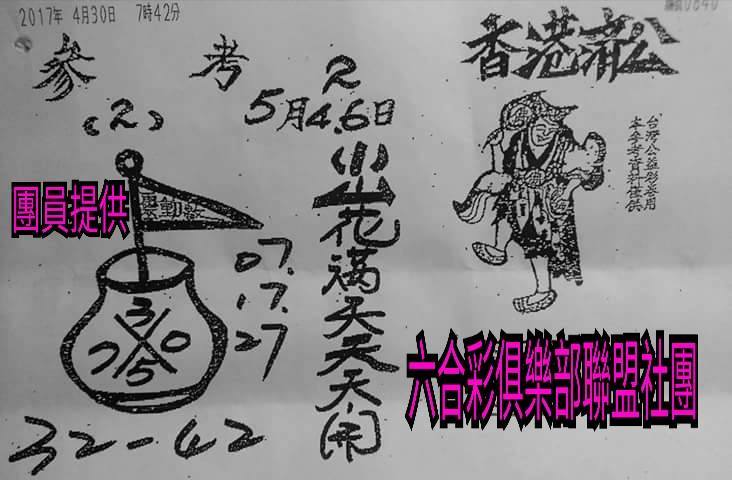 2017年 4月30日 7時42分
參考2
香港濟公
(2)
5月4.6日
台灣公益彩券用
本參考資料僅供
團員提供
07.
17.
27
3
7 0
5
花滿天天天開
六合彩俱樂部聯盟社團
32-42